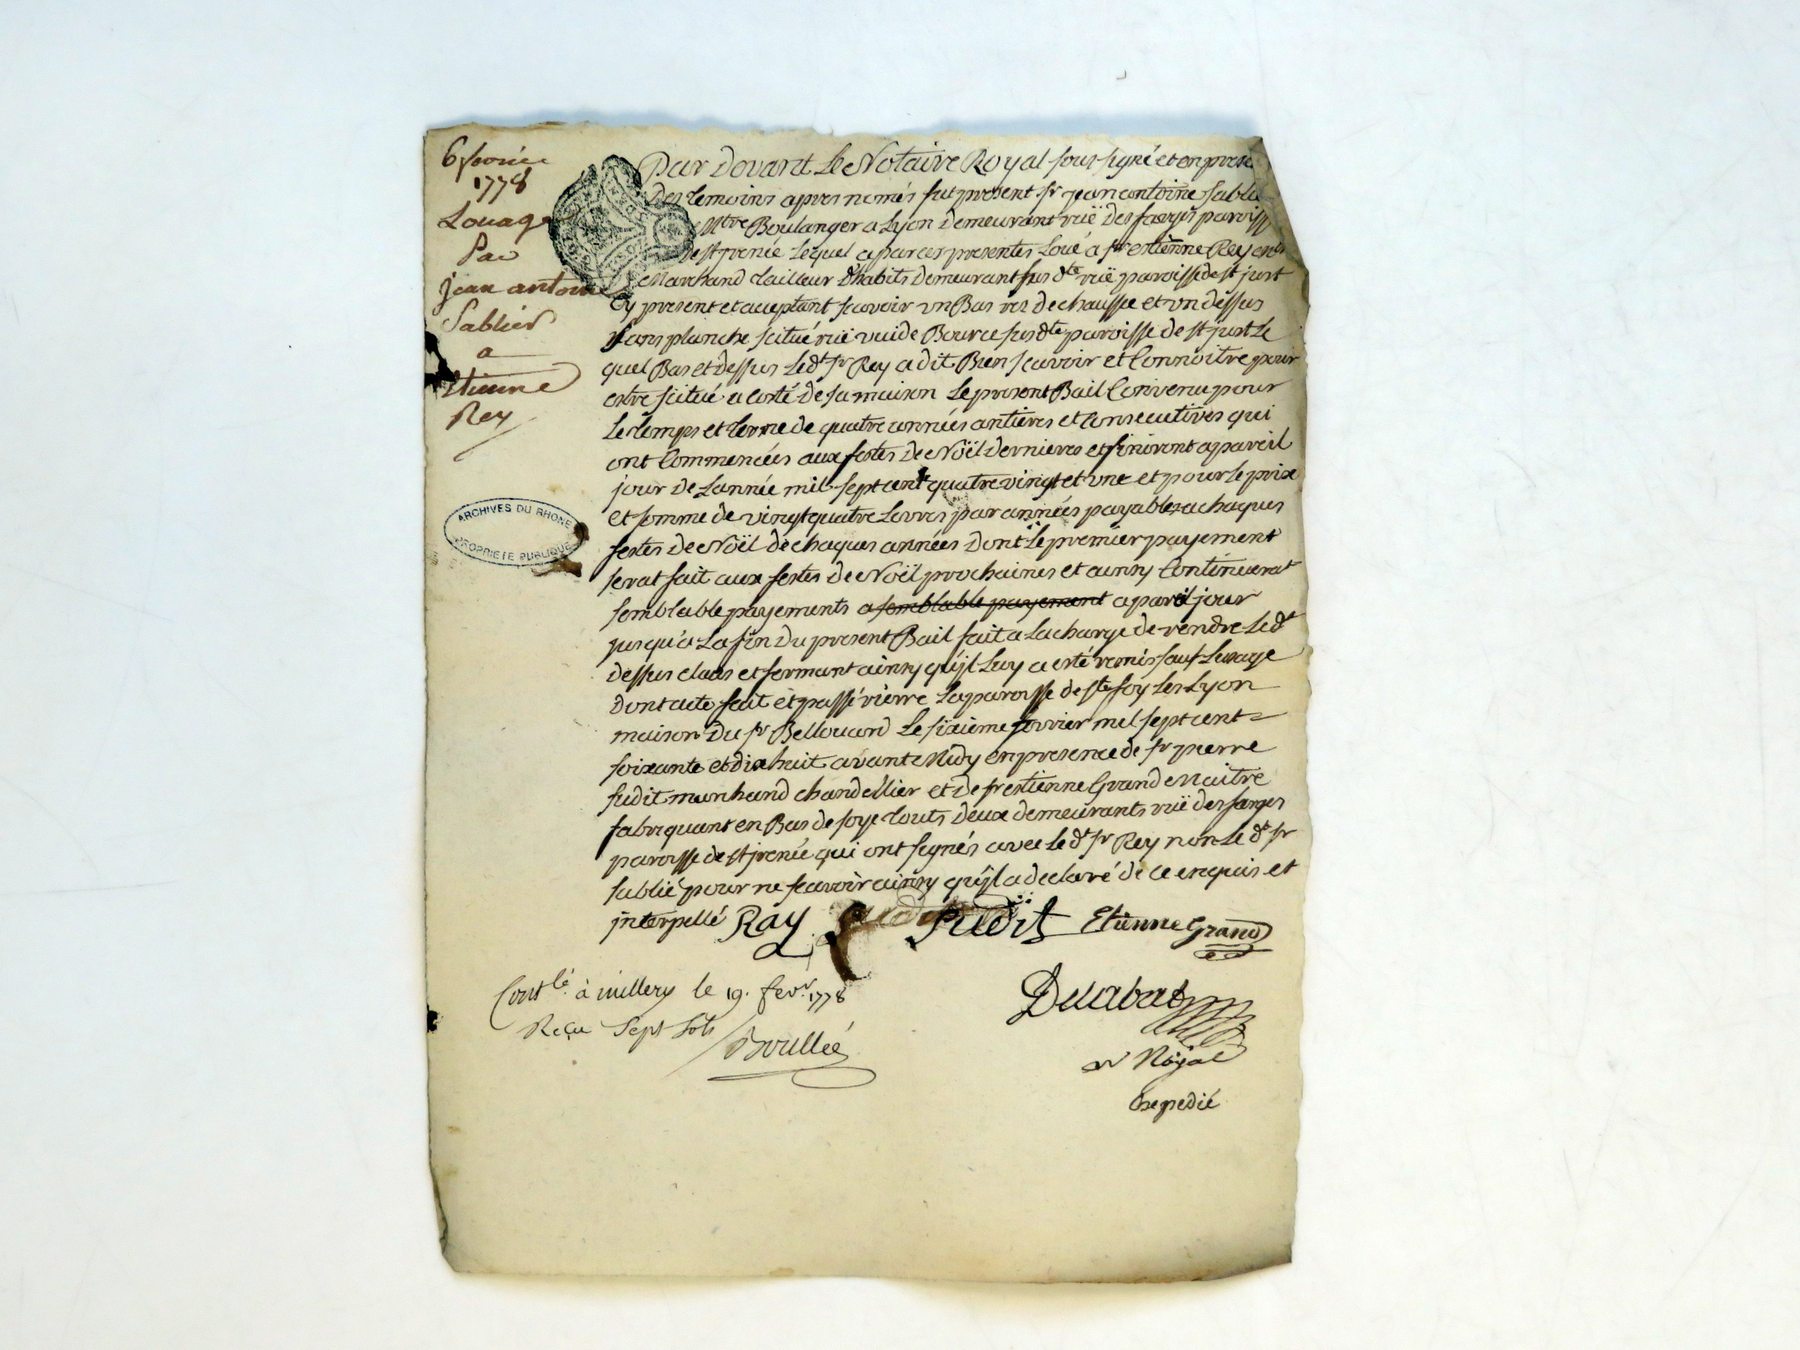 6 fevrier
1778
Louage
Par
jean antoine
Sablier
a
Etienne
Rey
ARCHIVES DU RHONE
PROPRIETE PUBLIQUE
Par Devant Le Notaire Royal sous signé et en prese
Des temoins apres només fut present sr jean antoine Sablié
Mtre Boulanger a Lyon Demeurant ruë Des farges paroisse
de st jrenée Lequel a par ces presentes Loué a sr estienne Rey
Marchand tailleur d'habits Demeurant sus dte ruë paroisse de st just
Cy present et aceptant scavoir un Bas rez de chausse et un dessus
sans planche scitué ruë vuide Bource sus dte paroisse de st just Le
quel Bas et dessus Le dt sr Rey a dit Bien scavoir et Connoitre pour
estre scitué a Costé De sa maison Le present Bail Convenu pour
Le temps et terme de quatre années antieres et Consecutives qui
ont Commencées aux festes De Noël dernieres et finiront a pareil
jour De Lannée mil sept cent quatre vingt et une et pour Le prix
et somme de vingt quatre Livres par années payables a chaques
festes De Noël de chaques années Dont Le premier payement
serat fait aux festes De Noël prochaines et ainsy Continuerat
semblable payements a semblable payement a pareil jour
jusqu'a La fin Du present Bail fait a La charge de rendre Le dt
dessus claas et fermant ainsy qu'jl Luy a esté remis sauf Lusage
Dont acte fait et passé rierre La paroisse de ste foy Les Lyon
maison Du sr Bellouard Le sixième fevrier mil sept cent
soixante et dix huit avant Midy en presence de sr pierre
fudit marchand chandellier et de sr estienne Grand Maitre
fabriquant en Bas de soye touts deux demeurants ruë des farges
paroisse de st jrenée qui ont signés avec Le dt sr Rey non Le dt sr
sablié pour ne scavoir ainsy qu'jl a declaré de ce enquis et
jnterpellé Ray fudit Etienne Grand
Contlé à millery le 19. fevr. 1778
Reçu Sept sols
Boullée
Delabat
Royal
Expedié